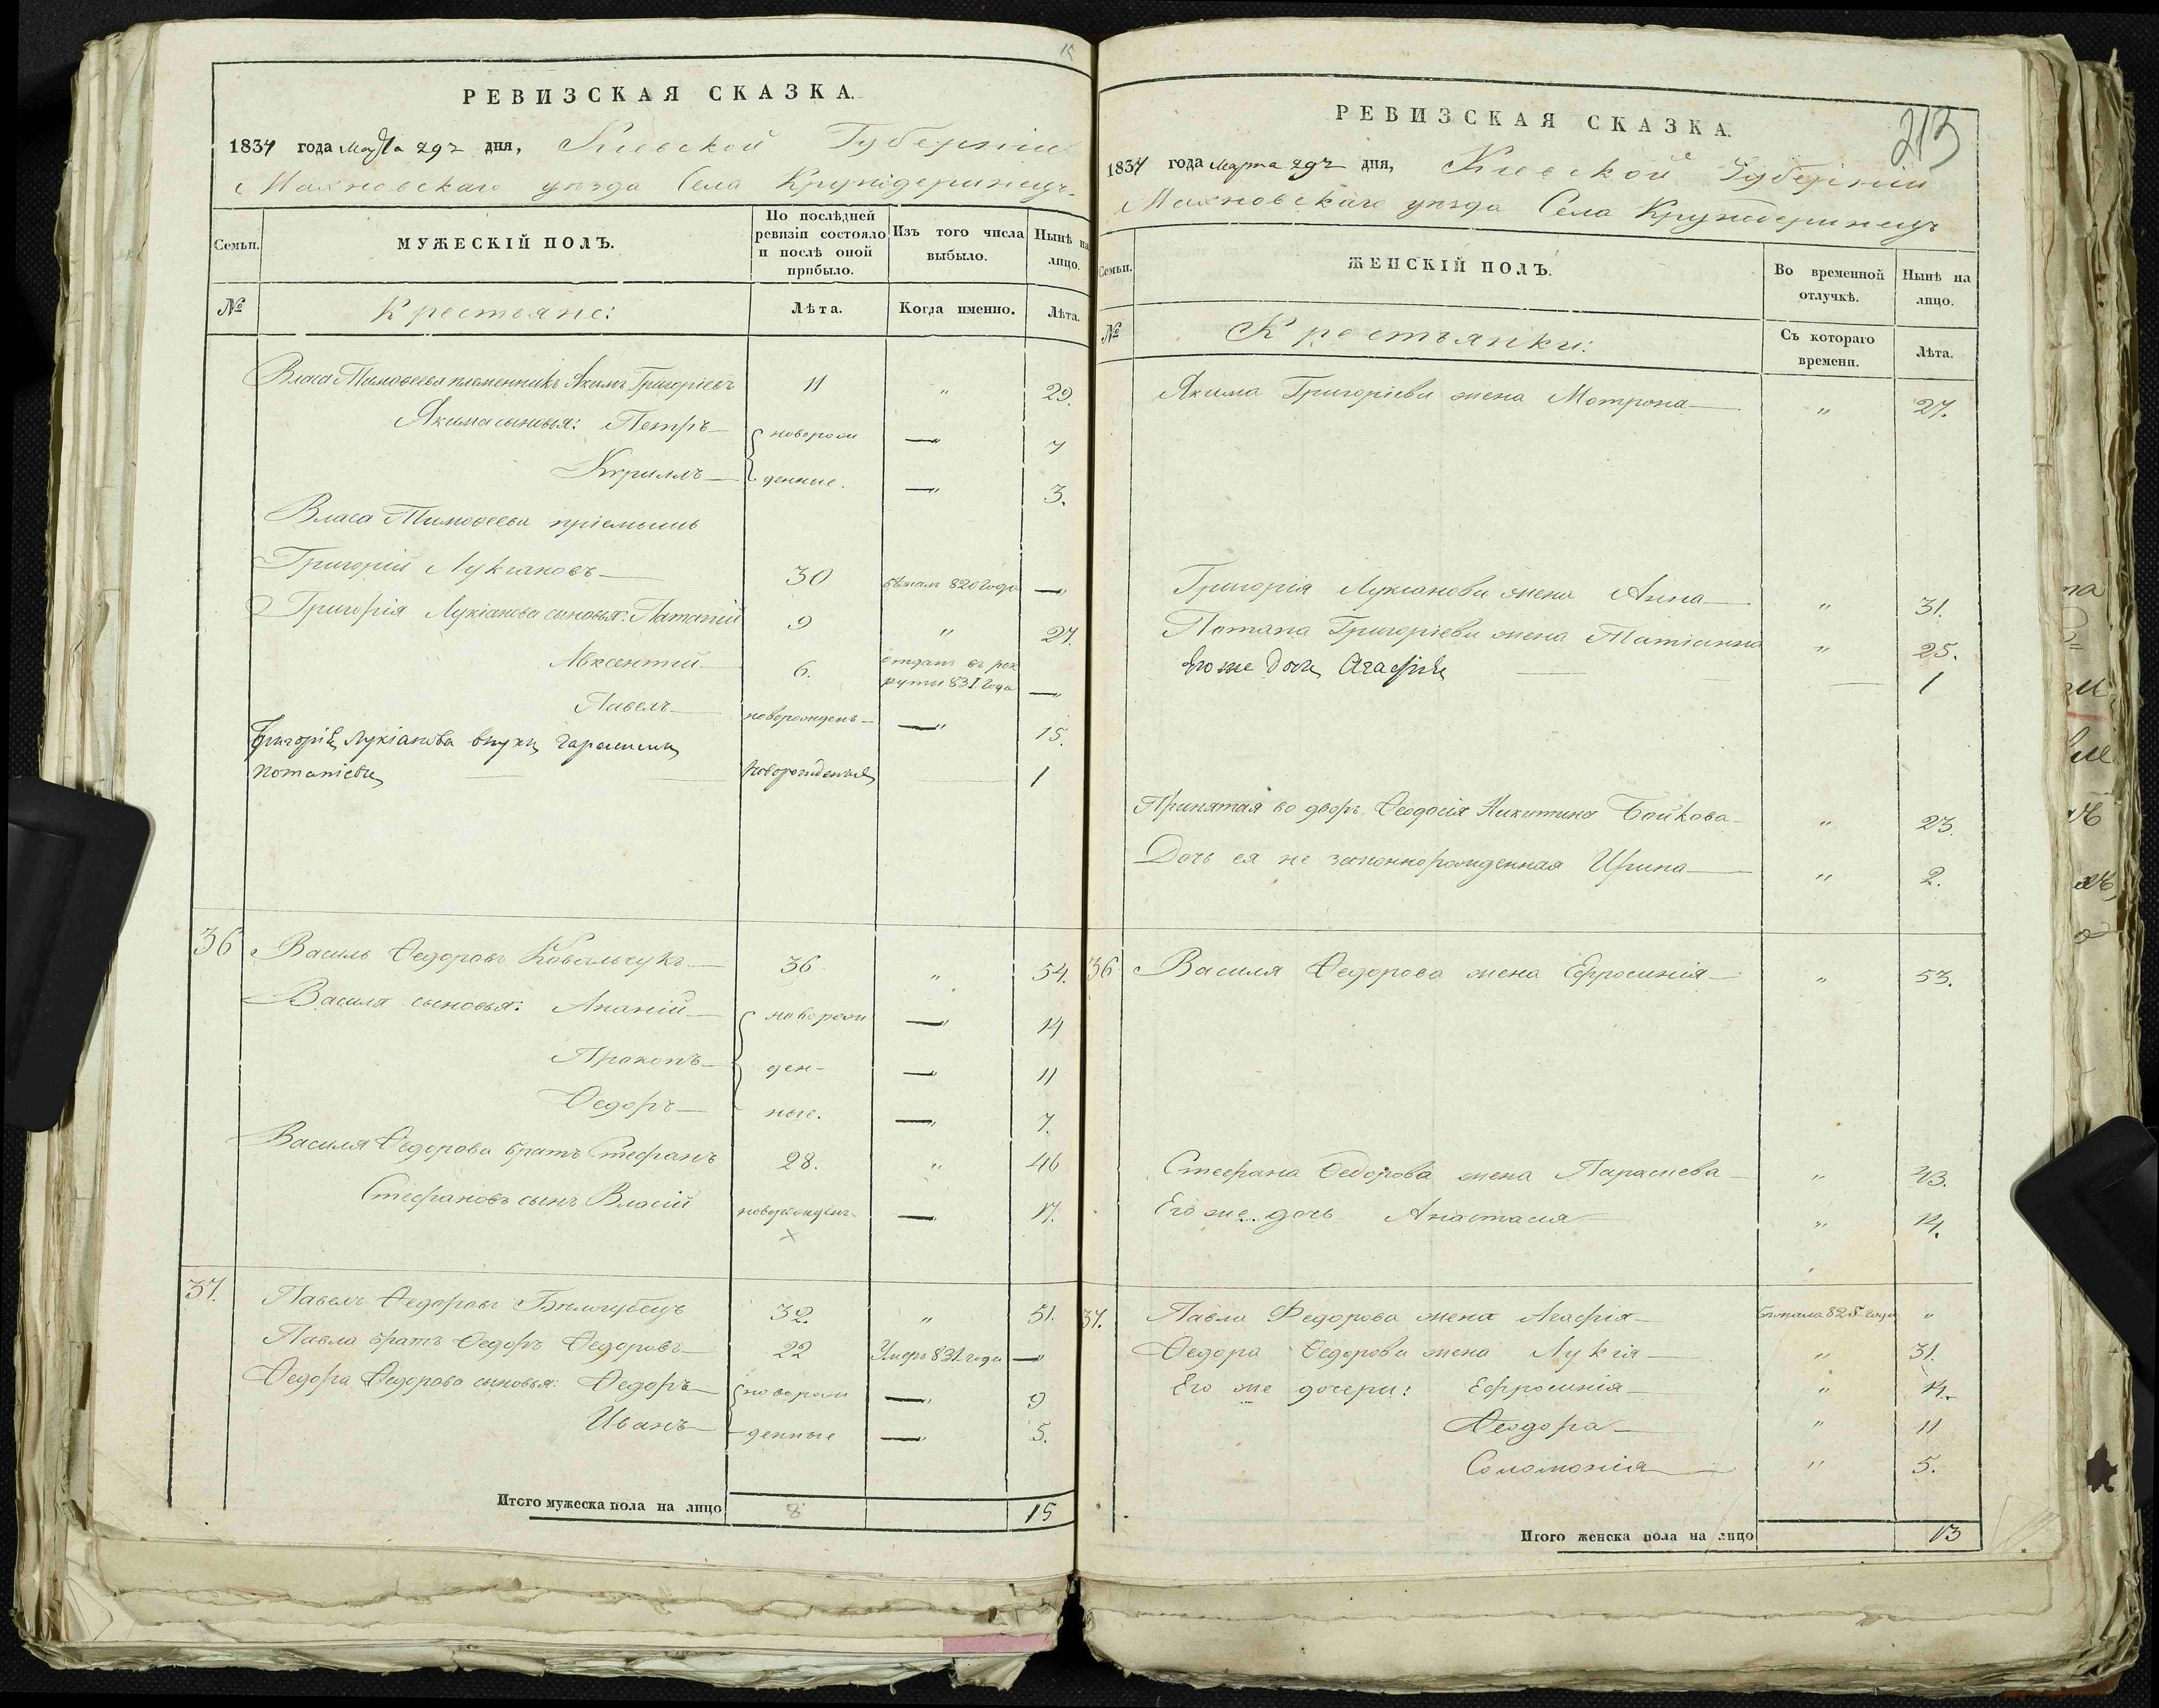 15
РЕВИЗСКАЯ СКАЗКА.
1834 года Марта 29го дня, Киевской Губернии
Махновскаго уѣзда Села Круподеринецъ
Семьи.
МУЖЕСКІЙ ПОЛЪ.
По послѣдней ревизіи состояло и послѣ оной прибыло.
Изъ того числа выбыло.
Нынѣ на лицо.
№
Крестьяне:
Лѣта.
Когда именно.
Лѣта.
Власа Тимофеева племенникъ Якимъ Григоріевъ 11 " 29.
Якима сыновья: Петръ новорож —" 7
Кириллъ денные. —" 3.
Власа Тимофеева пріемышь
Григорій Лукіановъ 30 бѣжалъ 820 года —"
Григорія Лукіанова сыновья: Патапій 9 " 27.
Авксентій 6. отданъ въ рек
руты 831 года —"
Павелъ новорожденъ —" 15.
Григорія Лукіанова внукъ Гарасимъ
Потапіевъ новорожденный 1
36 Василь Федоровъ Ковальчукъ 36 " 54.
Василя сыновья: Ананій новорож —" 14
Прокопъ ден- —" 11
Федоръ ные. —" 7.
Василя Федорова братъ Стефанъ 28. " 46
Стефановъ сынъ Власій новорожден. —" 17.
×
37. Павелъ Федоровъ Бѣлогубецъ 32. " 51.
Павла братъ Федоръ Федоровъ 22 Умеръ 831 года —"
Федора Федорова сыновья: Федоръ новорож —" 9
Иванъ денные —" 5.
Итого мужеска пола на лицо 8 15
213
РЕВИЗСКАЯ СКАЗКА.
1834 года Марта 29го дня, Киевской Губерніи
Махновскаго уѣзда Села Круподеринецъ
Семьи.
ЖЕНСКІЙ ПОЛЪ.
Во временной отлучкѣ.
Нынѣ на лицо.
№
Крестьянки:
Съ котораго времени.
Лѣта.
Якима Григоріева жена Мотрона " 27.
Григорія Лукіанова жена Анна " 31.
Потапа Григоріева жена Татіанна " 25.
Его же дочь Агафія 1
Принятая во дворъ Феодосія Никитина Бойкова " 23.
Дочь ея не законнорожденная Ирина " 2.
36 Василя Федорова жена Ефросинія " 53.
Стефана Федорова жена Параскева " 43.
Его же дочь Анастасія " 14.
37. Павла Федорова жена Агафія бѣжала 825 года "
Федора Федорова жена Лукія " 31.
Его же дочери: Ефросинія " 14.
Феодора " 11
Соломонія " 5.
Итого женска пола на лицо 13